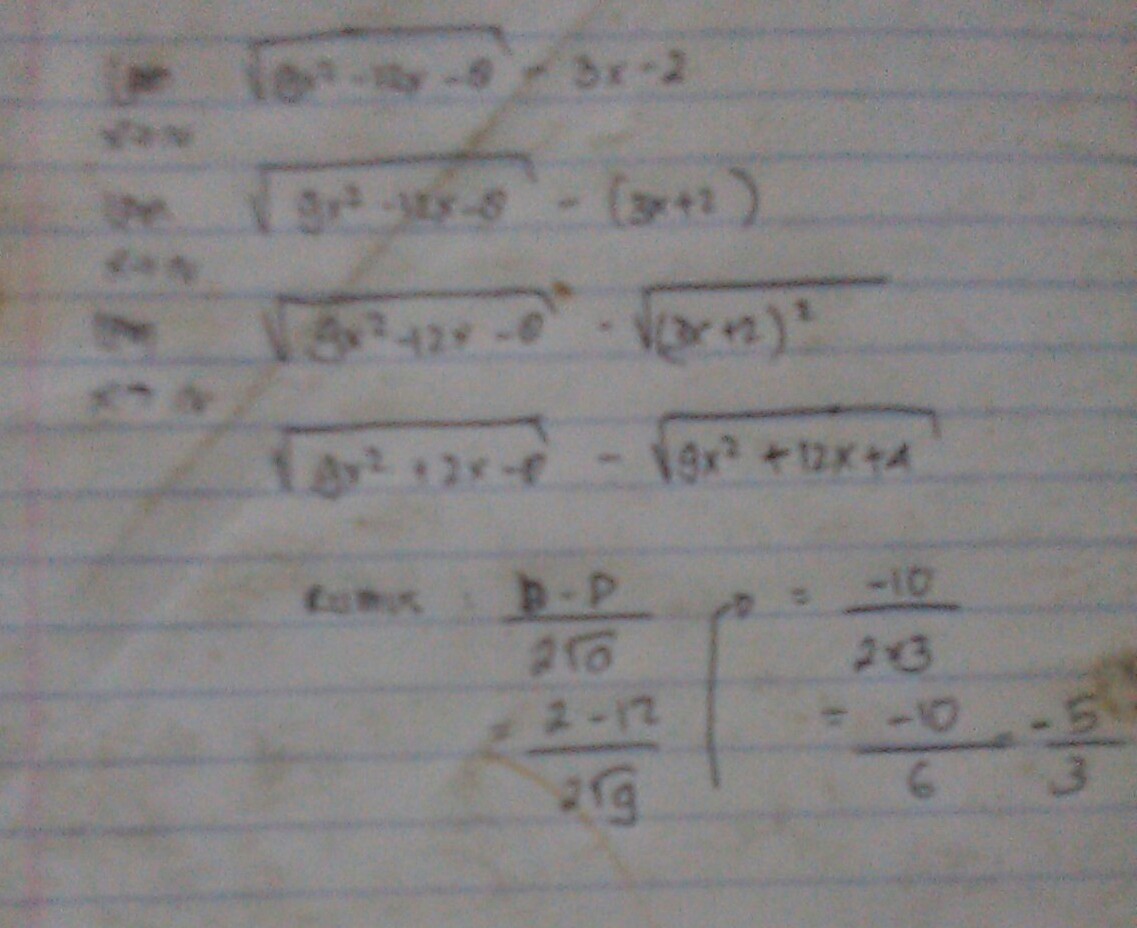 lim √(9x² -12x -8) - 3x - 2
x→∞
lim √(9x² -12x -8) - (3x+2)
x→∞
lim √(9x² -12x -8) - √((3x+2)²)
x→∞
√(9x² +2x -8) - √(9x² +12x+4)
Rumus : b-p / 2√a
= 2-12 / 2√9
= -10 / 2x3
= -10 / 6 = -5 / 3